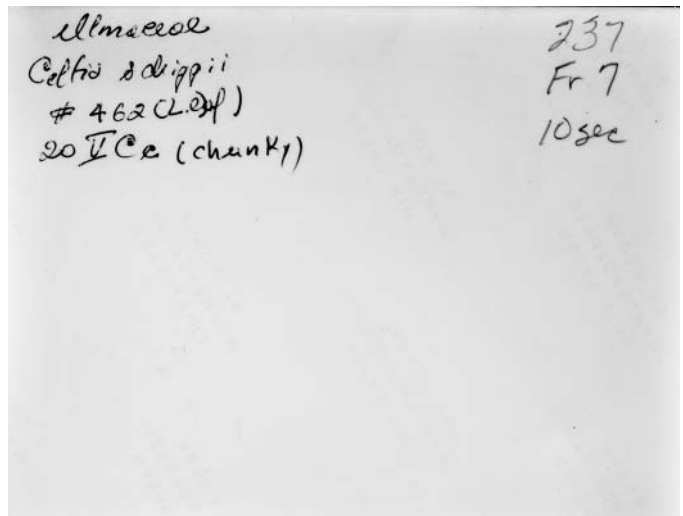 Ulmaceae
Celtis schippii
# 462 (Leaf)
20 V Ca (chunky)
237
Fr 7
10 sec